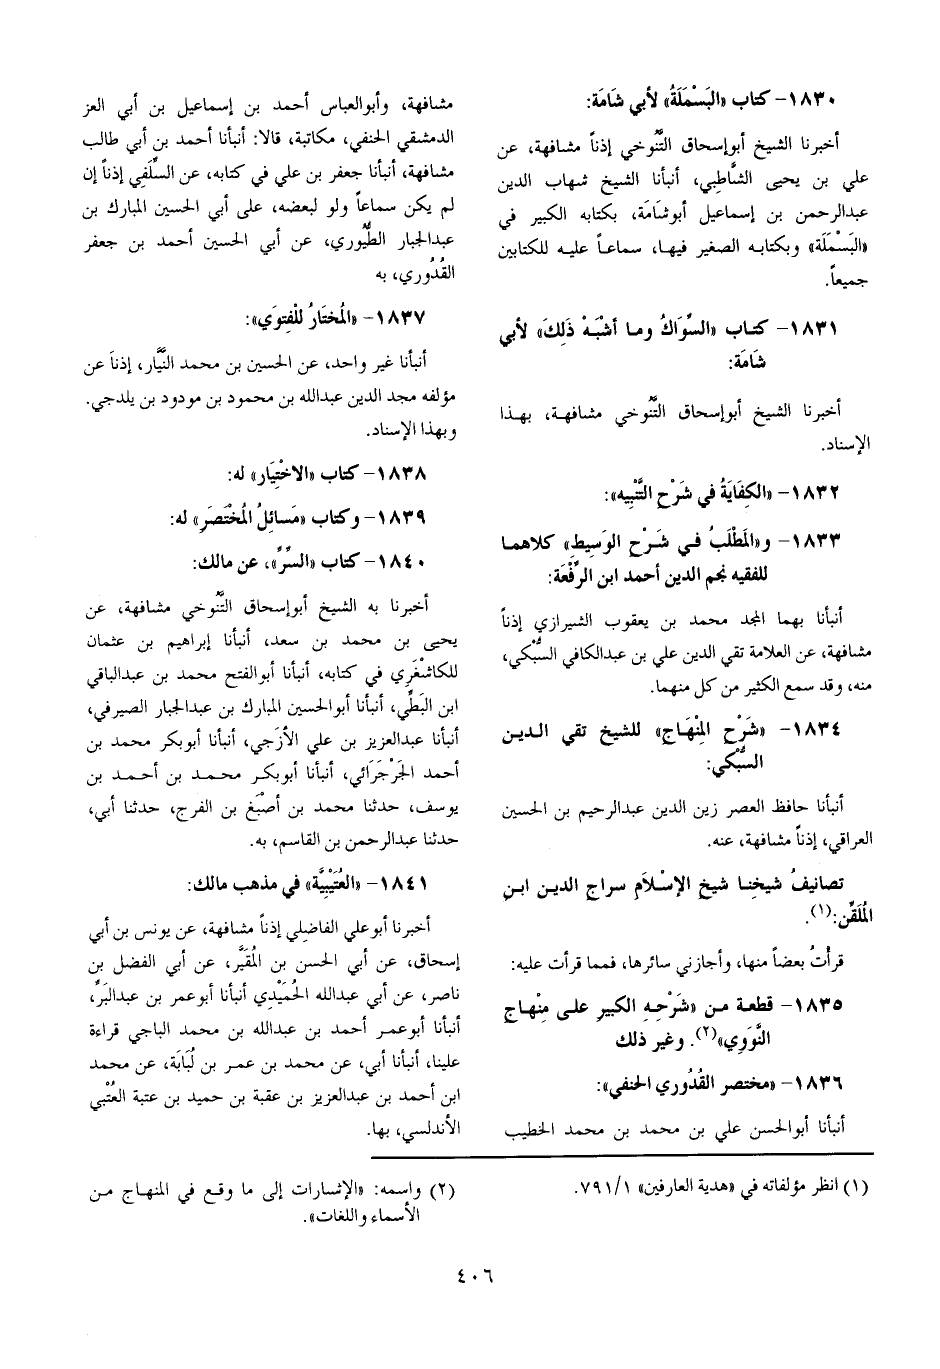 ١٨٣٠- كتاب «البَسْمَلَةُ» لأبي شَامَة:
أخبرنا الشيخ أبوإسحاق التَّنُوخي إذناً مشافهة، عن
علي بن يحيى الشَّاطبي، أنبأنا الشيخ شهاب الدين
عبدالرحمن بن إسماعيل أبوشَامَة، بكتابه الكبير في
«البَسْمَلَة» وبكتابه الصغير فيها، سماعاً عليه للكتابين
جميعاً.
١٨٣١- كتاب «السِّوَاكُ وما أشْبَهْ ذَلِكَ» لأبي
شَامَة:
أخبرنا الشيخ أبوإسحاق التَّنُوخي مشافهة، بهذا
الإسناد.
١٨٣٢- «الكِفَايَةُ في شَرْحِ التَّنْبِيه»:
١٨٣٣- و«المَطْلَبُ في شَرْحِ الوَسِيطِ» كلاهما
للفقيه نجم الدين أحمد ابن الرِّفْعَة:
أنبأنا بهما المجد محمد بن يعقوب الشيرازي إذناً
مشافهة، عن العلامة تقي الدين علي بن عبدالكافي السُّبْكي،
منه، وقد سمع الكثير من كل منهما.
١٨٣٤- «شَرْح المِنْهَاج» للشيخ تقي الدين
السُّبْكي:
أنبأنا حافظ العصر زين الدين عبدالرحيم بن الحسين
العراقي، إذناً مشافهة، عنه.
تصانيفُ شيخنا شيخ الإسْلَام سراج الدين ابن
المُلَقِّن:(١).
قرأتُ بعضاً منها، وأجازني سائرها، فمما قرأت عليه:
١٨٣٥- قطعة من «شَرْحِه الكبير على مِنْهاج
النَّوَوِي»(٢). وغير ذلك
١٨٣٦- «مختصر القُدُوري الحنفي»:
أنبأنا أبوالحسن علي بن محمد بن محمد الخطيب
مشافهة، وأبوالعباس أحمد بن إسماعيل بن أبي العز
الدمشقي الحنفي، مكاتبة، قالا: أنبأنا أحمد بن أبي طالب
مشافهة، أنبأنا جعفر بن علي في كتابه، عن السِّلَفي إذناً إن
لم يكن سماعاً ولو لبعضه، على أبي الحسين المبارك بن
عبدالجبار الطُّيُوري، عن أبي الحسين أحمد بن جعفر
القُدُوري، به
١٨٣٧- «المُختَارُ للْفِتوَي»:
أنبأنا غير واحد، عن الحسين بن محمد النَّيَّار، إذناً عن
مؤلفه مجد الدين عبدالله بن محمود بن مودود بن يلدجي.
وبهذا الإسناد.
١٨٣٨- كتاب «الاخْتِيَار» له:
١٨٣٩- وكتاب «مَسائِلُ المُخْتَصَر» له:
١٨٤٠- كتاب «السِّرِّ»، عن مالك:
أخبرنا به الشيخ أبوإسحاق التَّنُوخي مشافهة، عن
يحيى بن محمد بن سعد، أنبأنا إبراهيم بن عثمان
للكاشْغَري في كتابه، أنبأنا أبوالفتح محمد بن عبدالباقي
ابن البَطِّي، أنبأنا أبوالحسين المبارك بن عبدالجبار الصيرفي،
أنبأنا عبدالعزيز بن علي الأزَجي، أنبأنا أبوبكر محمد بن
أحمد الجَرْجَرَائي، أنبأنا أبوبكر محمد بن أحمد بن
يوسف، حدثنا محمد بن أصْبَغ بن الفرج، حدثنا أبي،
حدثنا عبدالرحمن بن القاسم، به.
١٨٤١- «العُتْبِيَّة» في مذهب مالك:
أخبرنا أبوعلي الفاضلي إذناً مشافهة، عن يونس بن أبي
إسحاق، عن أبي الحسن بن المُقَيَّر، عن أبي الفضل بن
ناصر، عن أبي عبدالله الحُمَيْدي أنبأنا أبوعمر بن عبدالبَرّ،
أنبأنا أبوعمر أحمد بن عبدالله بن محمد الباجي قراءة
علينا، أنبأنا أبي، عن محمد بن عمر بن لُبَابَة، عن محمد
ابن أحمد بن عبدالعزيز بن عقبة بن حميد بن عتبة العُتْبي
الأندلسي، بها.
(١) انظر مؤلفاته في «هدية العارفين» ٧٩١/١.
(٢) واسمه: «الإشارات إلى ما وقع في المنهاج من
الأسماء واللغات».
٤٠٦